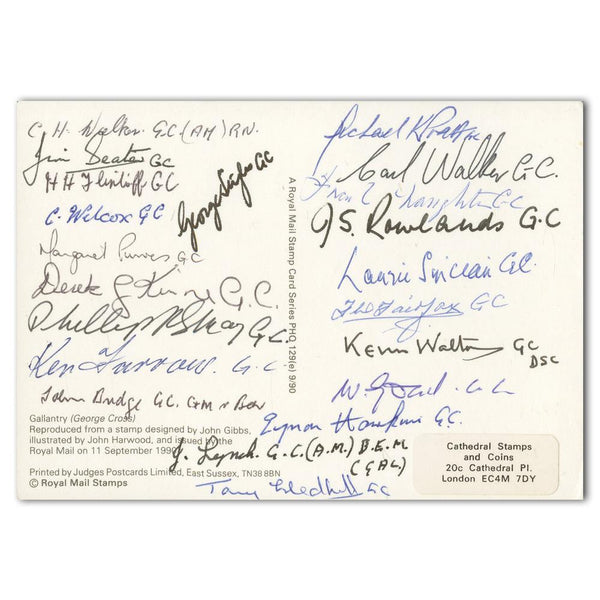 C. H. Walker. G.C. (AM) RN.
Jim Beaton GC
H H Flintoff GC
George Styles GC
C. Wilcox GC
Margaret Purves GC
Derek G Kinne G.C.
G.C.
Ken Farrow. G.C.
John Bridge GC. GM & Bar
Gallantry (George Cross)
Reproduced from a stamp designed by John Gibbs,
illustrated by John Harwood, and issued by the
Royal Mail on 11 September 1990
Printed by Judges Postcards Limited, East Sussex, TN38 8BN
© Royal Mail Stamps
A Royal Mail Stamp Card Series PHQ 129(e) 9/90
Michael K Pratt GC
Carl Walker G.C.
Naughton GC
J S. Rowlands G.C
Laurie Sinclair GC.
Fairfax GC
Kevin Walton GC
DSC
W. G.C.
Eynon Hawkins GC.
J. Lynch. G.C. (A.M.) B.E.M
(GAL)
Tony Gledhill GC
Cathedral Stamps
and Coins
20c Cathedral Pl.
London EC4M 7DY